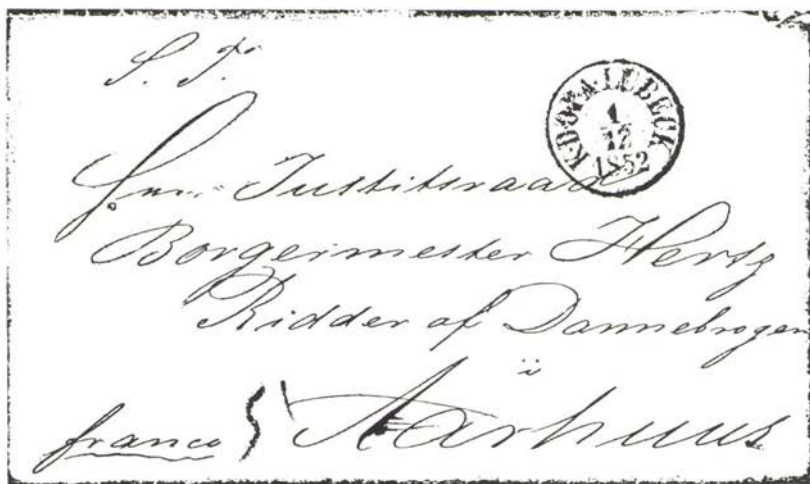 S. T.
K.D.O.P.A. LÜBECK
1
12
1852
Hrr. Justitsraad
Borgermester Hertz
Ridder af Dannebrogen
i
Aarhuus
franco